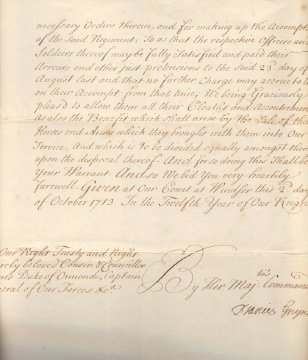 necessary Orders Therein, and for making up the Accompts
of the Said Regiment, So as that the respective Officers and
Soldiers thereof may be fully Satisfied and paid their
Arrears and other just pretensions to the said 23d. day of
August last and that no further Charge may accrue to Us
on their Accompt from that time, We being Graciously
pleas'd to allow them all their Cloaths and Accoutrements
As also the Benefit which Shall arise by the Sale of the
Horses and Arms which they brought with them into Our
Service, And which is to be divided equally amongst them
upon the disposal thereof. And for so doing this Shall be
Your Warrant And so We bid You very heartily
farewell Given at Our Court at Windsor this 2d. day
of October 1713. In the Twelfth Year of Our Reign
Our Right Trusty and Right
beloved Cousin & Councillor
Duke of Ormonde, Captain
General of Our Forces &ca
By Her Maj: ties Command
Francis Gwyn